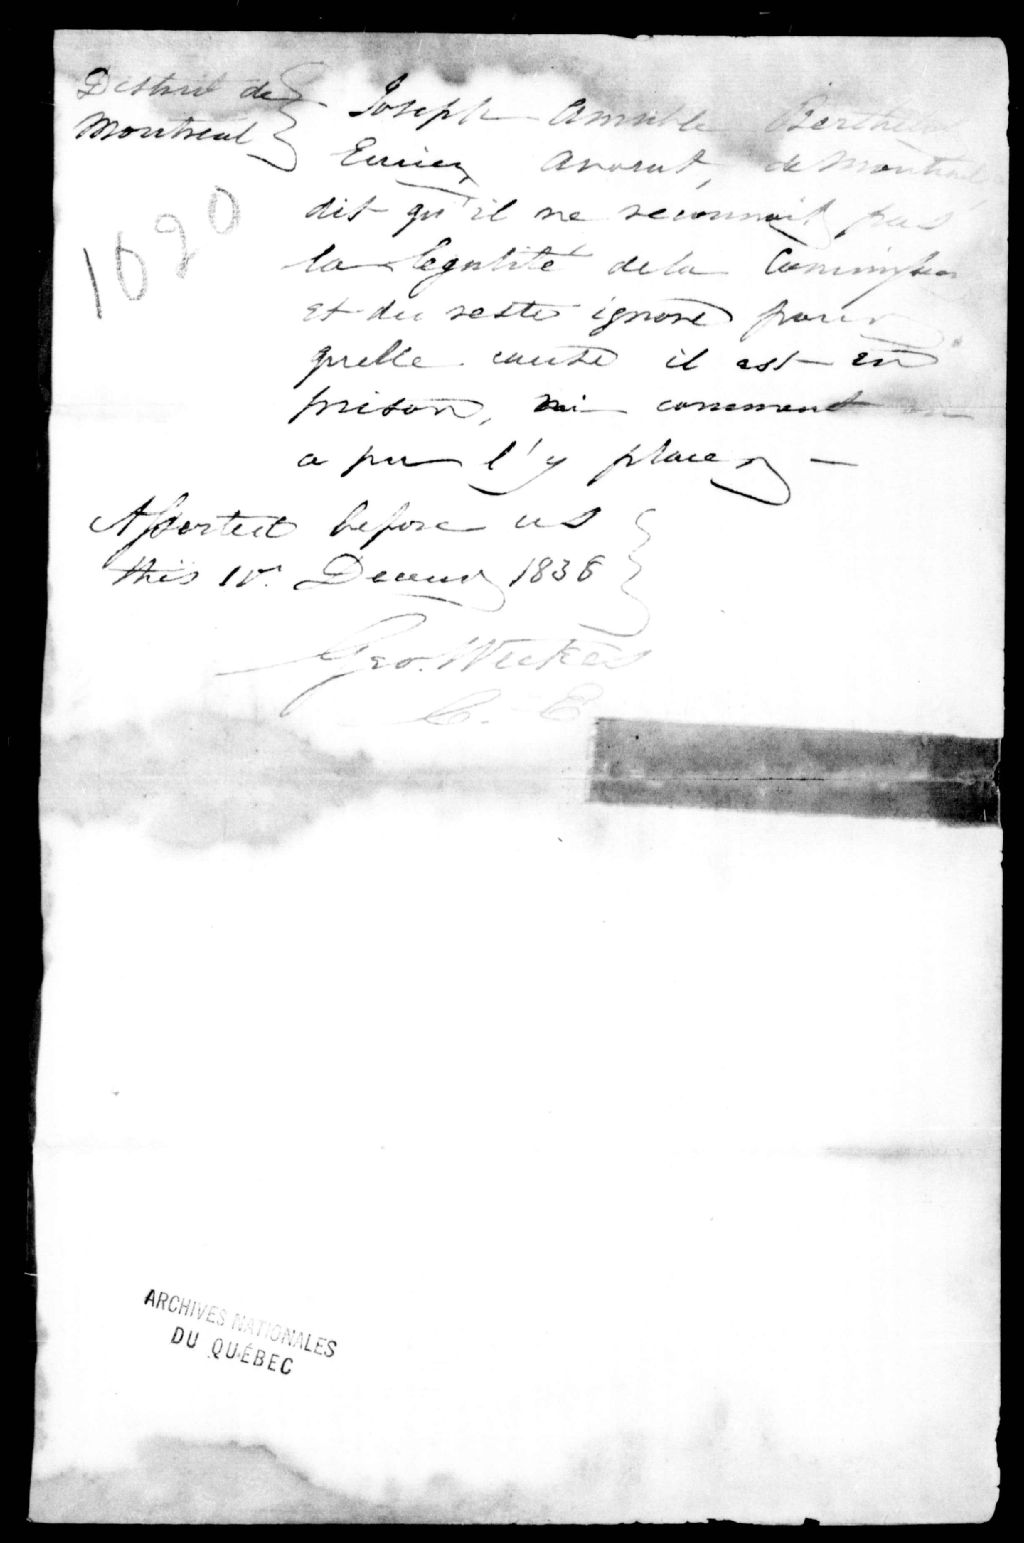 District de
Montreal
1020
Joseph Amable Berthelot
Ecuier, Avocat, de Montreal,
dit qu'il ne reconnait pas
la légalité de la Commission
et du reste ignore pour
quelle cause il est en
prison, ni comment on
a pu l'y placer —
Asserted before us
this 10. Decemr 1838
Geo. Weekes
C. E
ARCHIVES NATIONALES
DU QUÉBEC